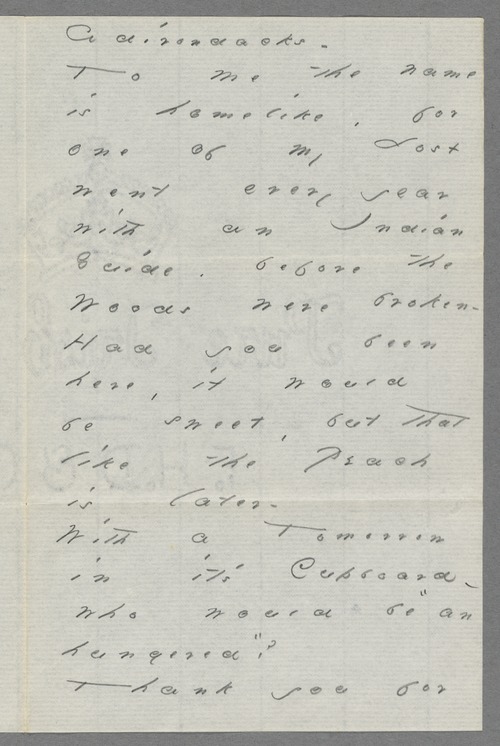 Adirondacks.
To me the name
is homelike, for
one of my Lost
went every year
with an Indian
Guide, before the
Woods were broken -
Had you been
here, it would
be sweet, but that
like the Peach
is later -
With a Tomorrow
in it's Cupboard,
who would be "an
hungered"?
Thank you for